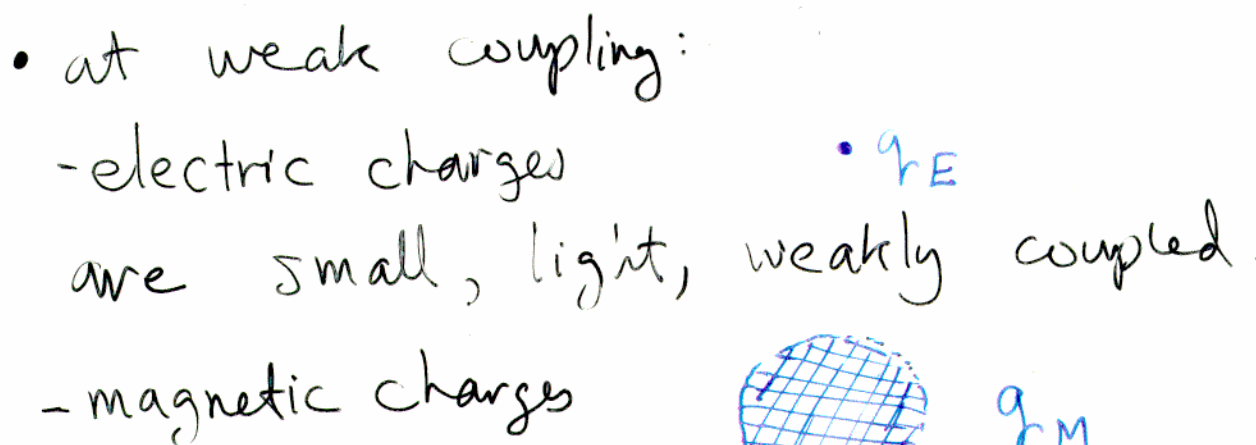 • at weak coupling:
- electric charges • qE
are small, light, weakly coupled.
- magnetic charges gM